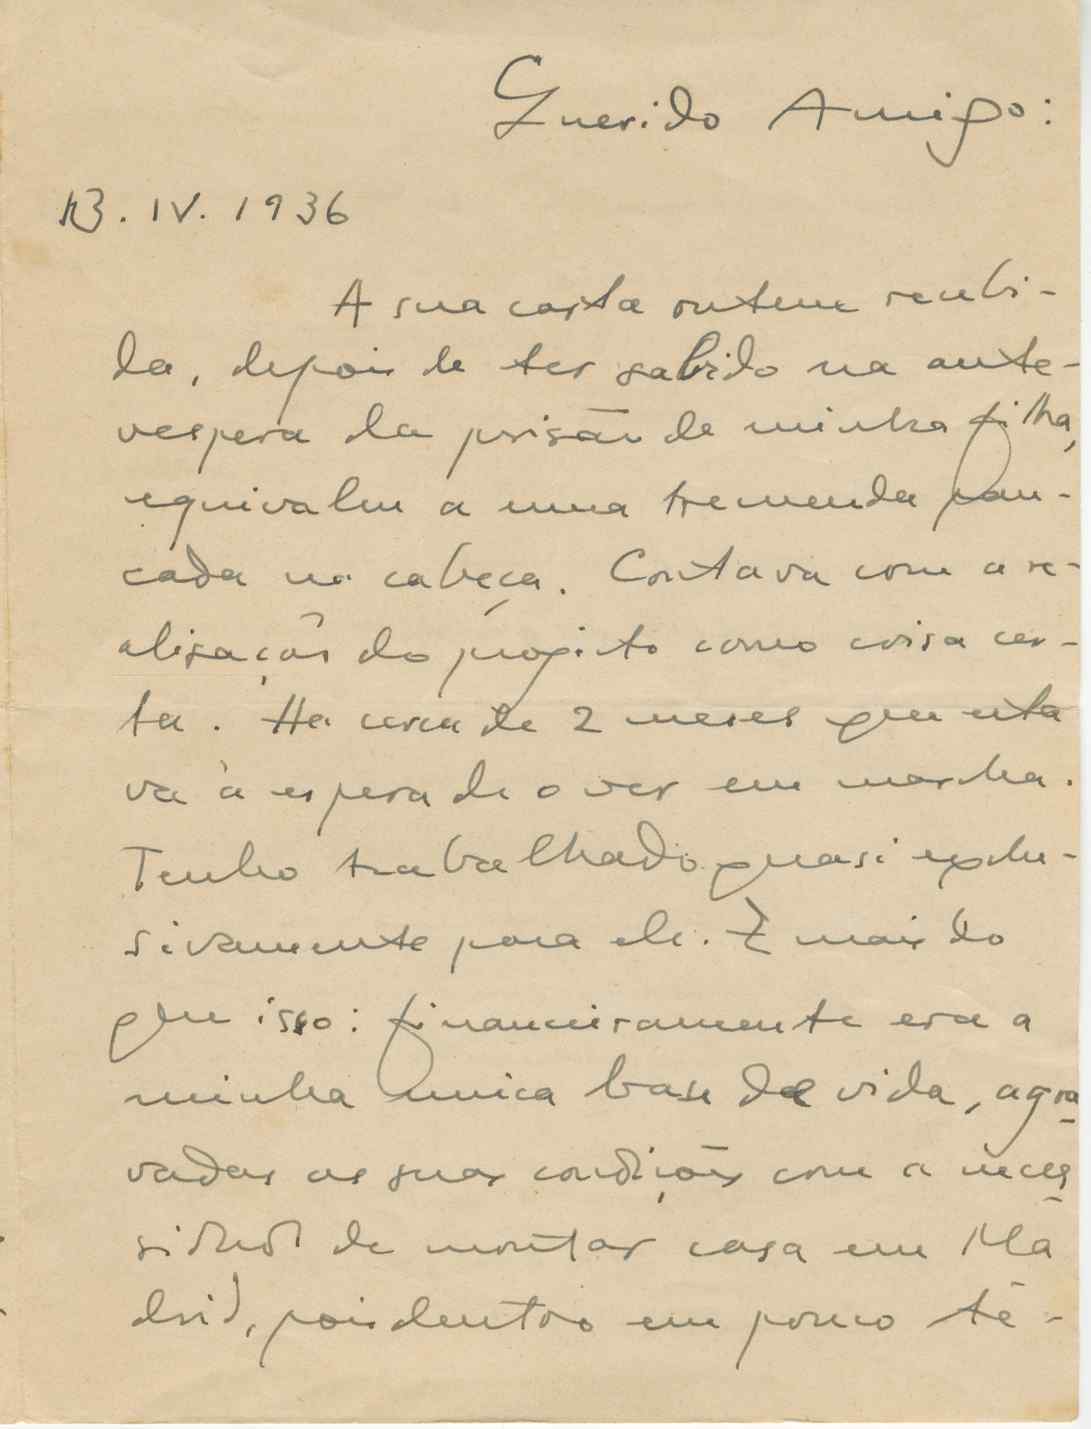 Querido Amigo:
13. IV. 1936
A sua carta ontem recebi-
da, depois de ter sabido na ante-
vespera da prisão de minha filha,
equivaleu a uma tremenda pan-
cada na cabeça. Contava com a re-
alisação do projecto como coisa cer-
ta. Ha cerca de 2 meses que esta
va à espera de o ver em marcha.
Tenho trabalhado quasi exclu-
sivamente para ele. E mais do
que isso: financeiramente era a
minha unica base de vida, agra
vadas as suas condições com a neces
sidade de montar casa em Ma
drid, pois dentro em pouco tê-